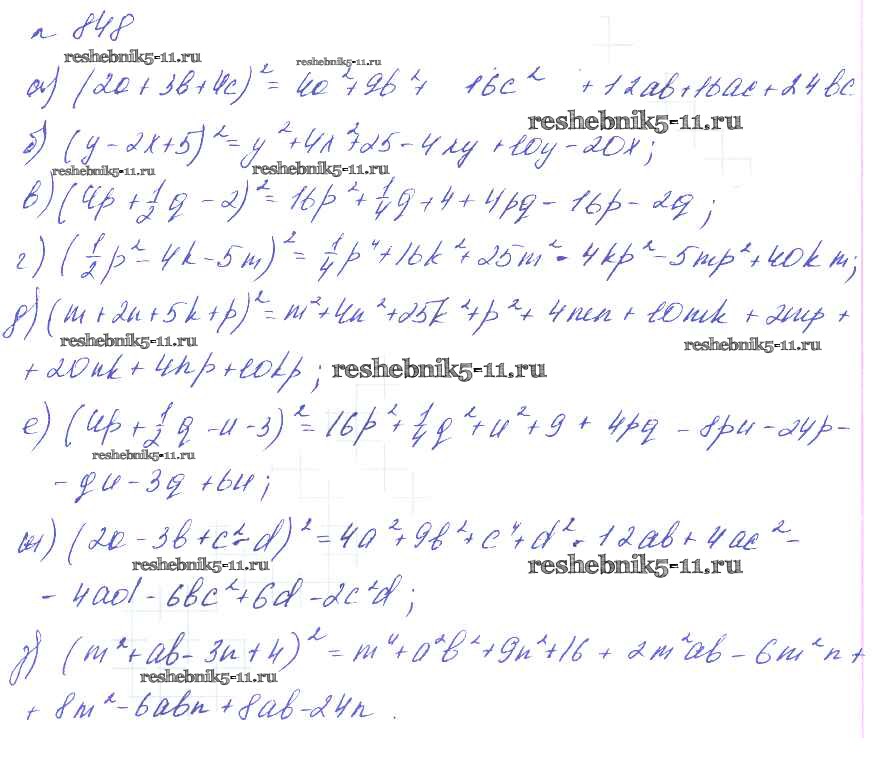 n 848
reshebnik5-11.ru reshebnik5-11.ru
а) (2a + 3b + 4c)² = 4a² + 9b² + 16c² + 12ab + 16ac + 24bc
reshebnik5-11.ru
б) (y - 2x + 5)² = y² + 4x² + 25 - 4xy + 10y - 20x;
reshebnik5-11.ru reshebnik5-11.ru
в) (4p + 1/2 q - 2)² = 16p² + 1/4 q + 4 + 4pq - 16p - 2q;
г) (1/2 p² - 4k - 5m)² = 1/4 p⁴ + 16k² + 25m² - 4kp² - 5mp² + 40km;
д) (m + 2n + 5k + p)² = m² + 4n² + 25k² + p² + 4mn + 10mk + 2mp +
reshebnik5-11.ru reshebnik5-11.ru
+ 20nk + 4np + 10kp; reshebnik5-11.ru
е) (4p + 1/2 q - u - 3)² = 16p² + 1/4 q² + u² + 9 + 4pq - 8pu - 24p -
reshebnik5-11.ru
- qu - 3q + 6u;
ж) (2a - 3b + c² - d)² = 4a² + 9b² + c⁴ + d² - 12ab + 4ac² -
reshebnik5-11.ru reshebnik5-11.ru
- 4ad - 6bc² + 6d - 2c²d;
з) (m² + ab - 3n + 4)² = m⁴ + a²b² + 9n² + 16 + 2m²ab - 6m²n +
reshebnik5-11.ru
+ 8m² - 6abn + 8ab - 24n.